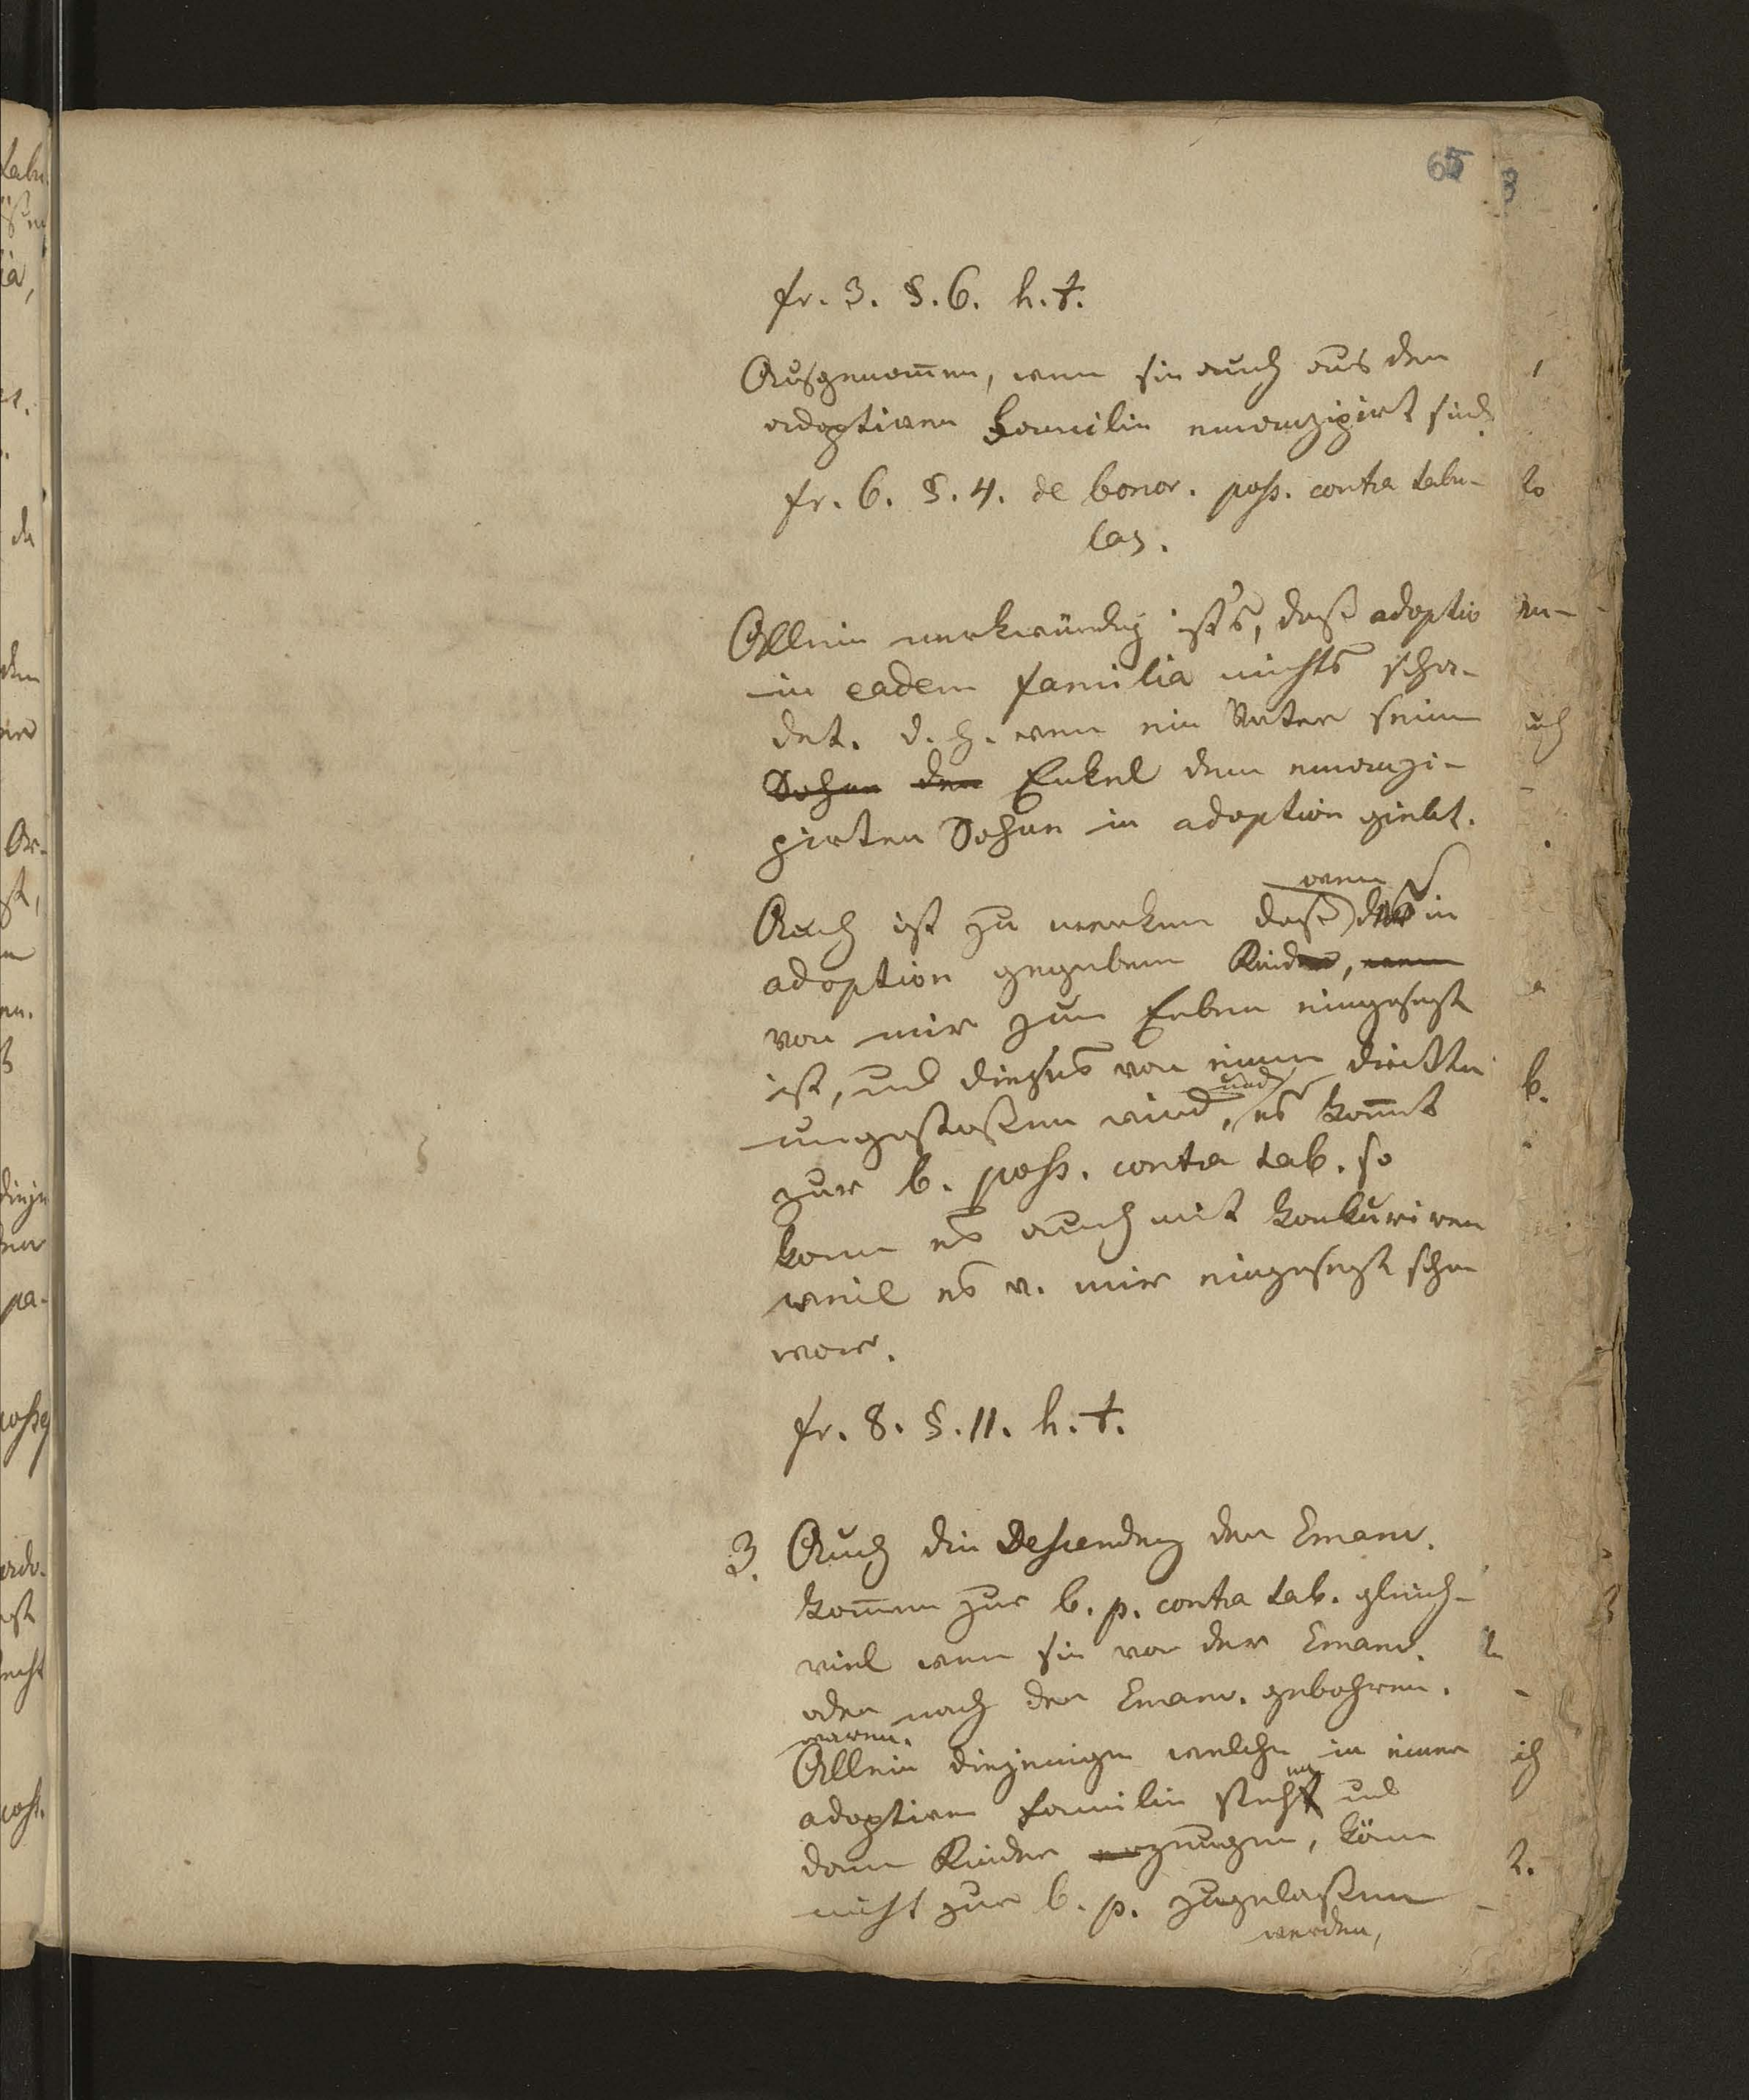 65
fr. 3. §. 6. h. t.
Ausgenom̄en, wenn sie auch aus der
adoptiven Familie emanzipirt sind.
fr. 6. §. 4. de bonor. poss. contra tabu-
las.
Allein merkwürdig ist's, daß adoptio
in eadem familia nichts scha-
det. d. h. wenn ein Vater seine
Sohne den Enkel dem emanzi-
pirten Sohne in adoption giebt.
wenn
Auch ist zu merken daß das in
adoption gegebene Kind, wenn
von mir zum Erben eingesezt
ist, und dieses von einem dritten
umgestoßen wird, und es kom̄t
zur b. poss. contra tab. so
kann es auch mit konkuriren
weil es v. mir eingesezt schon
war.
fr. 8. §. 11. h. t.
3. Auch die Descendenz der Emanc.
kom̄en zur b. p. contra tab. gleich-
viel wenn sie vor der Emanc.
oder nach der Emanc. gebohren.
waren.
Allein diejenigen welche in einer
adoptiven Familie stehen und
dann Kinder erzeugen, könn
nicht zur b. p. zugelassen
werden,